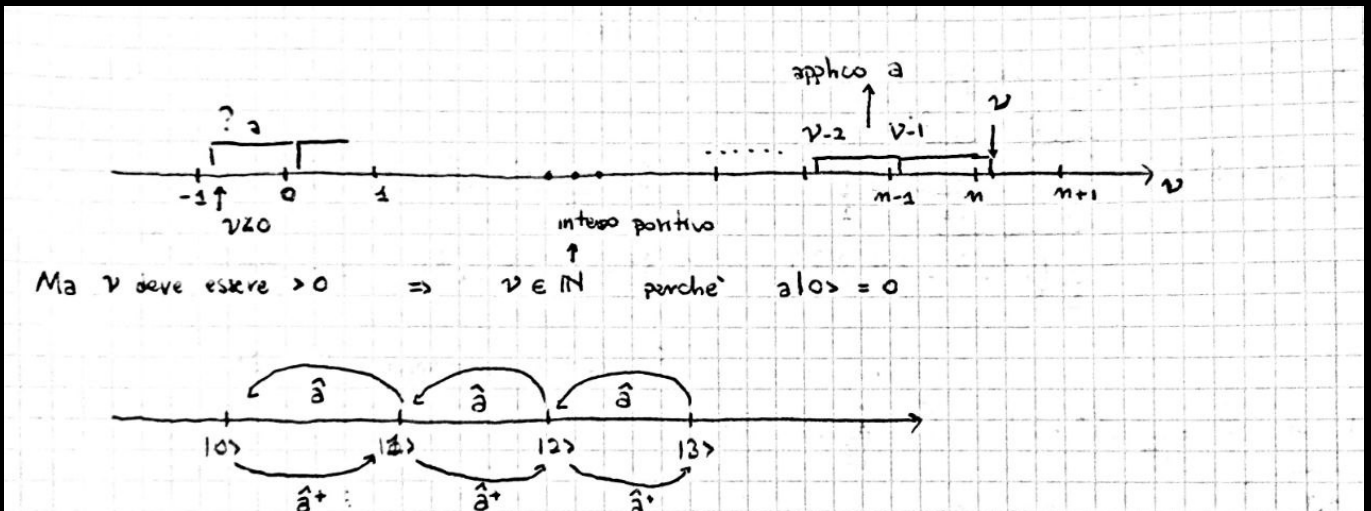 applico a
? a
ν-2 ν-1 ν
-1 0 1 ....... n-1 n n+1 ν
ν<0
intero positivo
Ma ν deve essere >0 => ν ∈ ℕ perchè a|0> = 0
â â â
|0> |1> |2> |3>
â+ â+ â+